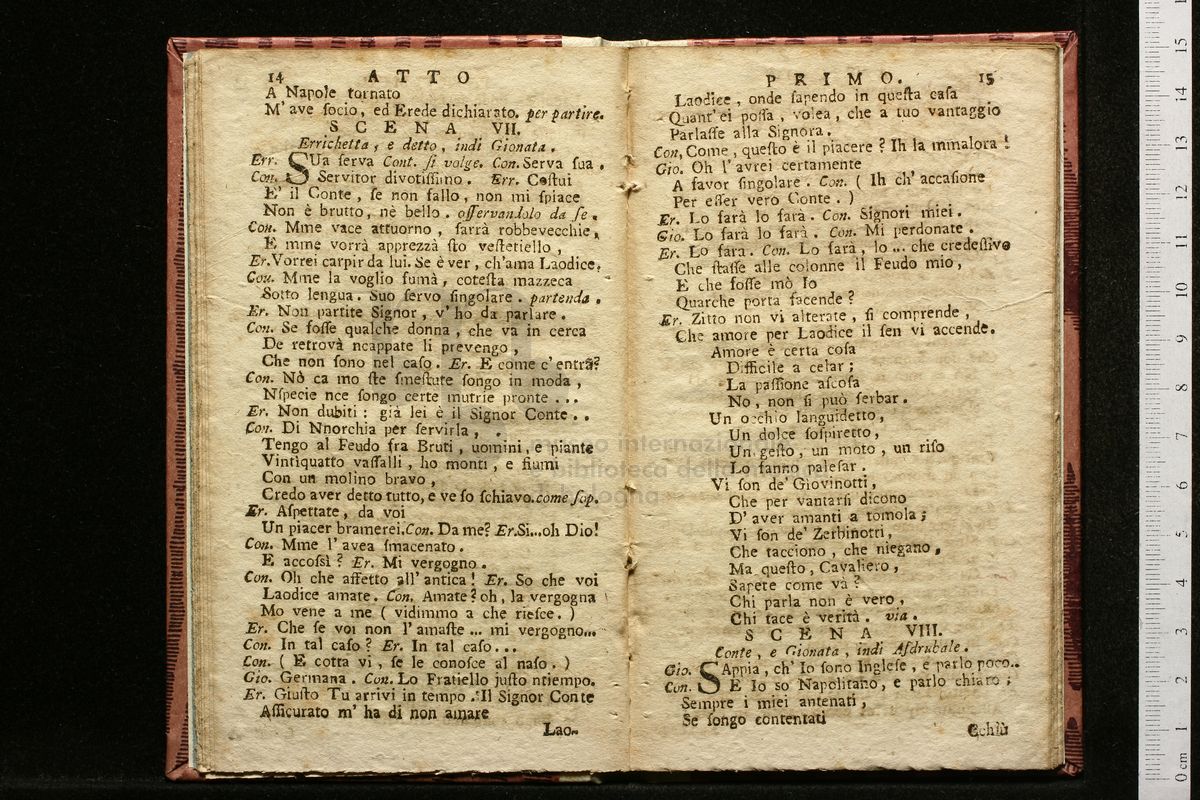 14 ATTO
A Napole tornato
M' ave socio, ed Erede dichiarato. per partire.
SCENA VII.
Errichetta, e detto, indi Gionata.
Err. SUa serva Cont. si volge. Con. Serva sua.
Con. Servitor divotissimo. Err. Costui
E' il Conte, se non fallo, non mi spiace
Non è brutto, nè bello. osservandolo da se.
Con. Mme vace attuorno, sarrà robbevecchie,
E mme vorrà apprezzà sto vestetiello,
Er. Vorrei carpir da lui. Se è ver, ch'ama Laodice.
Con. Mme la voglio fumà, cotesta mazzeca
Sotto lengua. Suo servo singolare. partendo.
Er. Non partite Signor, v' ho da parlare.
Con. Se fosse qualche donna, che va in cerca
De retrovà ncappate li prevengo,
Che non sono nel caso. Er. E come c' entra?
Con. Nò ca mo ste smesture songo in moda,
Nspecie nce songo certe mutrie pronte ...
Er. Non dubiti: già lei è il Signor Conte ..
Con. Di Nnorchia per servirla,
Tengo al Feudo fra Bruti, uomini, e piante
Vintiquatto vassalli, ho monti, e fiumi
Con un molino bravo,
Credo aver detto tutto, e ve so schiavo. come sop.
Er. Aspettate, da voi
Un piacer bramerei. Con. Da me? Er. Si...oh Dio!
Con. Mme l' avea smacenato.
E accossì? Er. Mi vergogno.
Con. Oh che affetto all' antica! Er. So che voi
Laodice amate. Con. Amate? oh, la vergogna
Mo vene a me ( vidimmo a che riesce. )
Er. Che se voi non l' amaste ... mi vergogno...
Con. In tal caso? Er. In tal caso...
Con. ( E cotta vi, se le conosce al naso. )
Gio. Germana. Con. Lo Fratiello justo ntiempo.
Er. Giusto Tu arrivi in tempo. Il Signor Conte
Assicurato m' ha di non amare
Lao-
PRIMO. 15
Laodice, onde sapendo in questa casa
Quant' ei possa, volea, che a tuo vantaggio
Parlasse alla Signora.
Con. Come, questo è il piacere? Ih la mmalora!
Gio. Oh l' avrei certamente
A favor singolare. Con. ( Ih ch' accasione
Per esser vero Conte. )
Er. Lo farà lo farà. Con. Signori miei.
Gio. Lo farà lo farà. Con. Mi perdonate.
Er. Lo fara. Con. Lo farà, lo ... che credessivo
Che stasse alle colonne il Feudo mio,
E che fosse mò Io
Quarche porta facende?
Er. Zitto non vi alterate, si comprende,
Che amore per Laodice il sen vi accende.
Amore è certa cosa
Difficile a celar;
La passione ascosa
No, non si può serbar.
Un occhio languidetto,
Un dolce sospiretto,
Un gesto, un moto, un riso
Lo fanno palesar.
Vi son de' Giovinotti,
Che per vantarsi dicono
D' aver amanti a tomola;
Vi son de' Zerbinotti,
Che tacciono, che niegano,
Ma questo, Cavaliero,
Sapete come và?
Chi parla non è vero,
Chi tace è verità. via.
SCENA VIII.
Conte, e Gionata, indi Asdrubale.
Gio. SAppia, ch' Io sono Inglese, e parlo poco..
Con. SE Io so Napolitano, e parlo chiaro;
Sempre i miei antenati,
Se songo contentati
Cchiù
museo internazionale
biblioteca della
bologna
0 cm 1 2 3 4 5 6 7 8 9 10 11 12 13 14 15